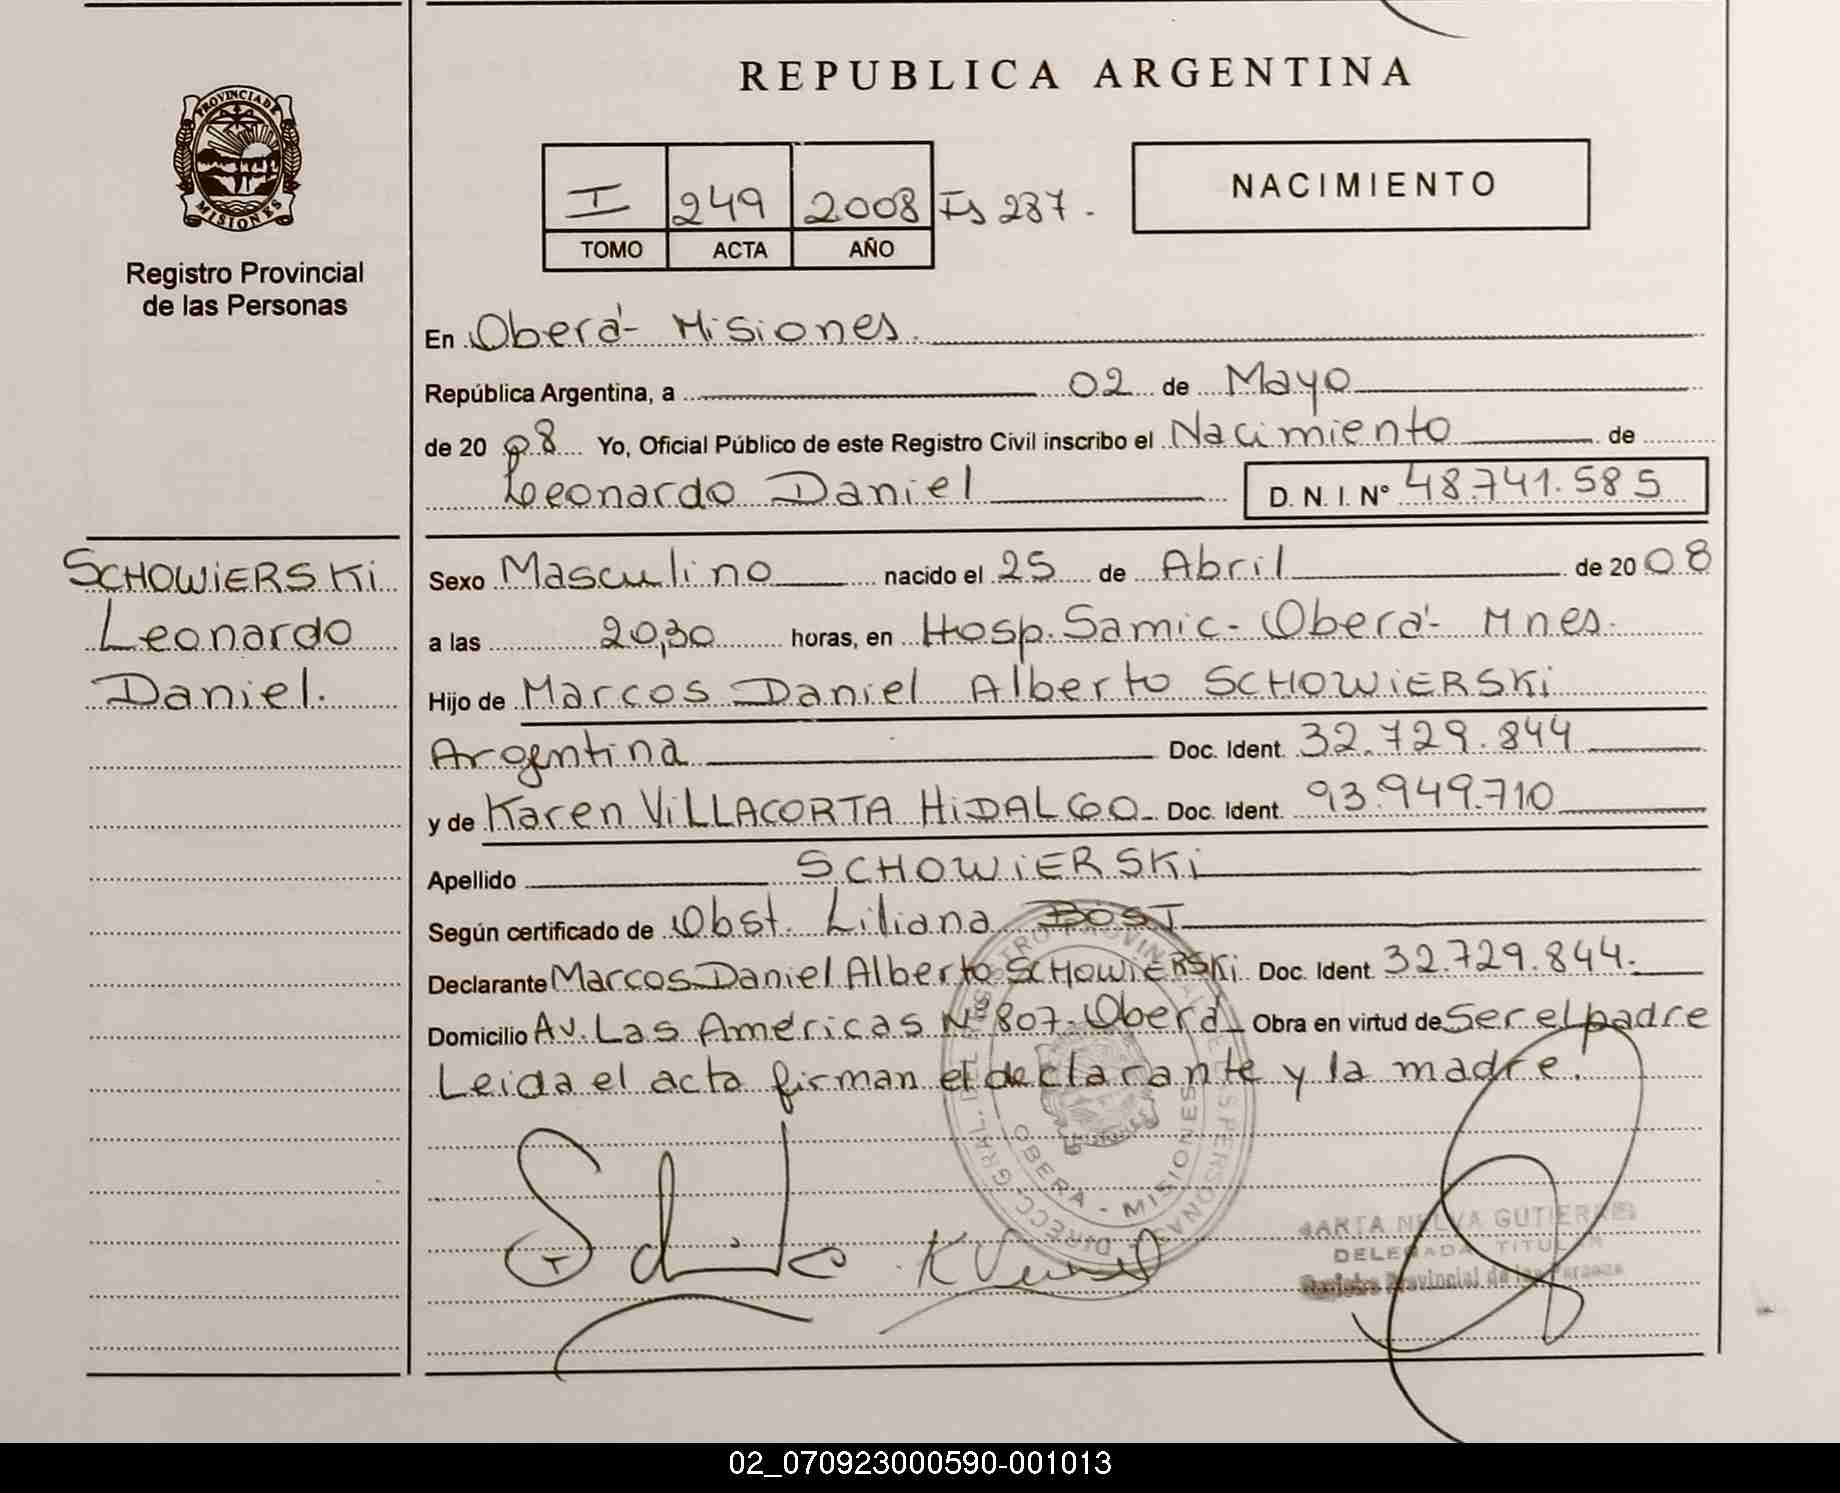 REPUBLICA ARGENTINA
PROVINCIA DE MISIONES
Registro Provincial
de las Personas
I 249 2008 Fs 237.
TOMO ACTA AÑO
NACIMIENTO
En Oberá- Misiones.
República Argentina, a 02 de Mayo
de 2008 Yo, Oficial Público de este Registro Civil inscribo el Nacimiento de
Leonardo Daniel D. N. I. Nº 48.741.585
SCHOWiERSKi
Leonardo
Daniel.
Sexo Masculino nacido el 25 de Abril de 2008
a las 20,30 horas, en Hosp. Samic- Oberá- Mnes.
Hijo de Marcos Daniel Alberto SCHOWiERSKi
Argentina Doc. Ident. 32.729.844
y de Karen ViLLACORTA HiDALGO Doc. Ident. 93.949.710
Apellido SCHOWiERSKi
Según certificado de Obst. Liliana BOST
Declarante Marcos Daniel Alberto SCHOWiERSKi. Doc. Ident. 32.729.844.
Domicilio Av. Las Américas Nº 807- Oberá Obra en virtud de Ser el padre
Leida el acta firman el declarante y la madre.
OBERA - MISIONES
NELVA GUTIERREZ
DELEGADA TITULAR
Registro Provincial de las Personas
02_070923000590-001013